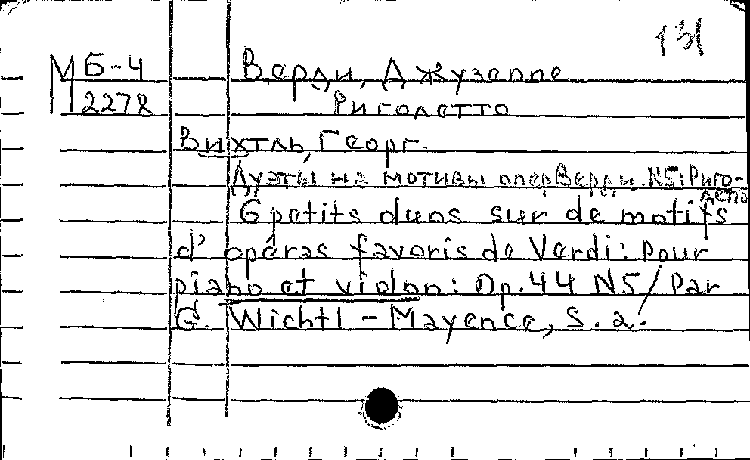 131
МБ-4 Верди, Джузеппе
2278 Риголетто
Вихтль, Георг.
Дуэты на мотивы опер Верди. N5: Риго-
летто
6 petits duos sur de motifs
d' opéras favoris de Verdi: pour
piano et violon: Op. 44 N5 / Par
G. Wichtl - Mayence, s. a.